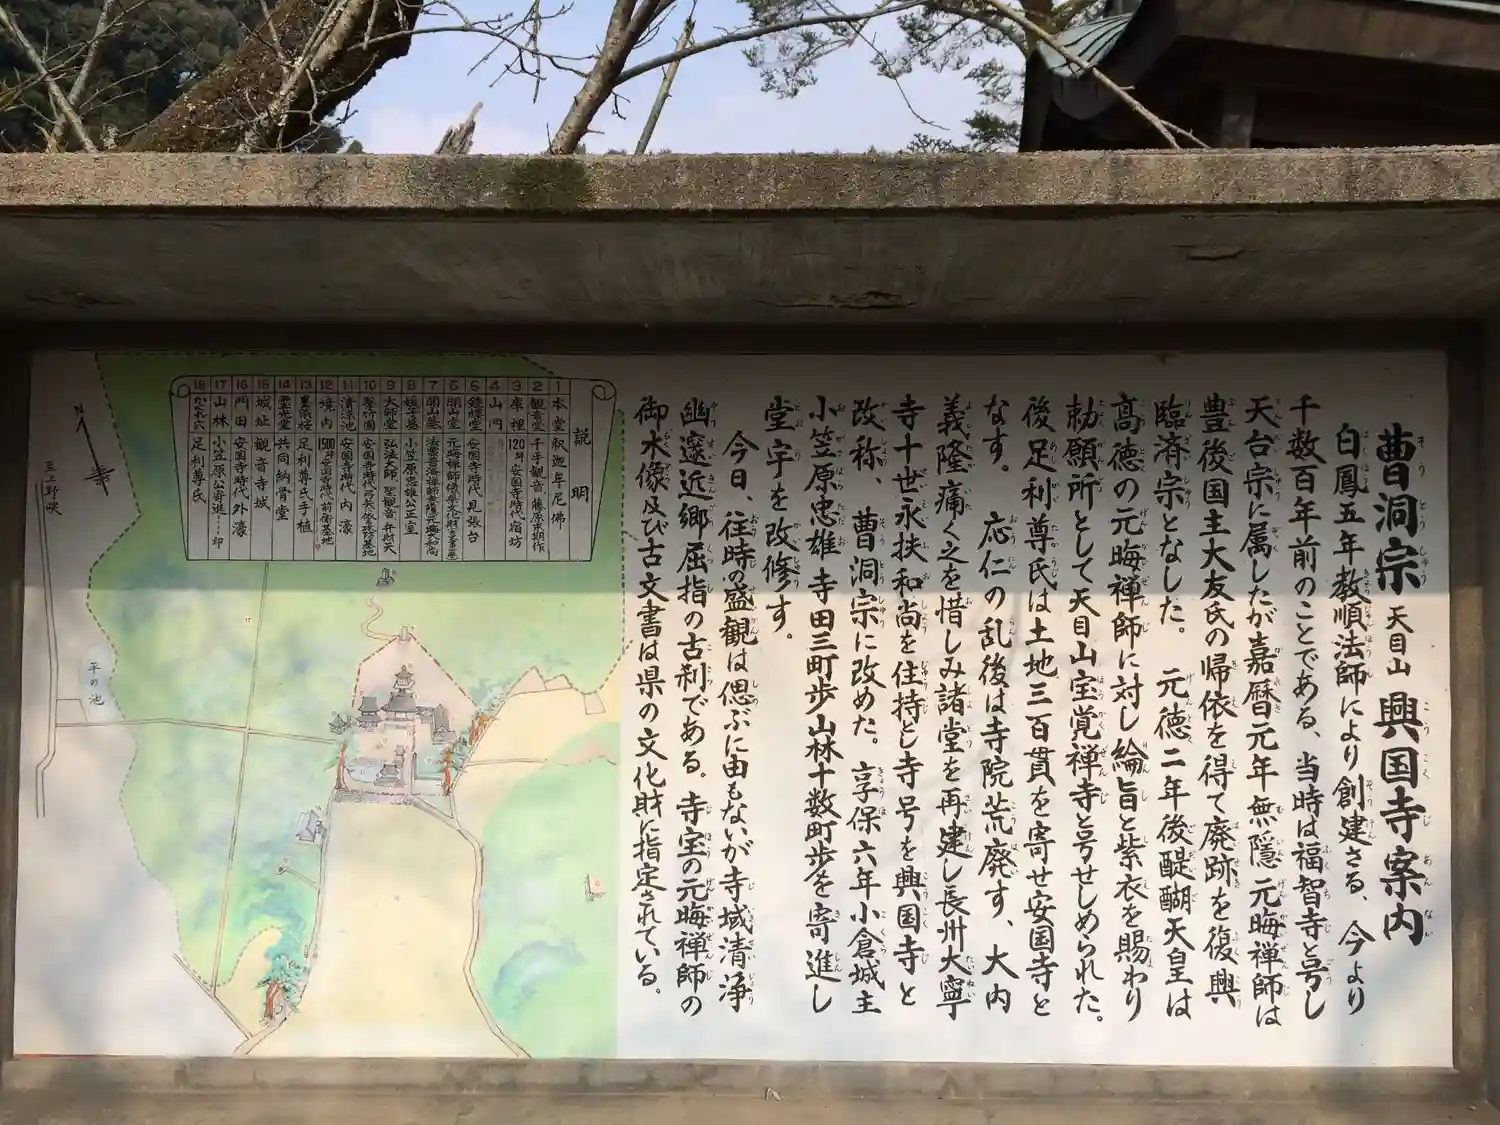 曹洞宗 天目山 興国寺案内
白鳳五年教順法師により創建さる、今より
千数百年前のことである、当時は福智寺と号し
天台宗に属したが嘉暦元年無隱元晦禅師は
豊後国主大友氏の帰依を得て廃跡を復興
臨済宗となした。 元徳二年後醍醐天皇は
高徳の元晦禅師に対し綸旨と紫衣を賜わり
勅願所として天目山宝覚禅寺と号せしめられた。
後足利尊氏は土地三百貫を寄せ安国寺と
なす。 応仁の乱後は寺院荒廃す、大内
義隆痛く之を惜しみ諸堂を再建し長州大寧
寺十世永扶和尚を住持とし寺号を興国寺と
改称、曹洞宗に改めた。享保六年小倉城主
小笠原忠雄寺田三町歩山林十数町歩を寄進し
堂宇を改修す。
今日、往時の盛観は偲ぶに由もないが寺域清浄
幽邃近郷屈指の古刹である。寺宝の元晦禅師の
御木像及び古文書は県の文化財に指定されている。
説明
1 本堂 釈迦牟尼佛
2 観音堂 千手観音 藤原末期作
3 庫裡 120坪 安国寺時代宿坊
4 山門
5 鐘楼堂 安国寺時代見張台
6 開山堂
7 開山墓
8 小笠原忠雄公正室
9 大師堂 弘法大師 聖観音 弁財天
10
11 清浄池 安国寺時代 内濠
12 境内
13 墨染桜 足利尊氏手植
14 霊光堂 共同納骨堂
15 城址 観音寺城
16 門田 安国寺時代 外濠
17 山林
18 かくれ穴 足利尊氏
至上野峡
平の池